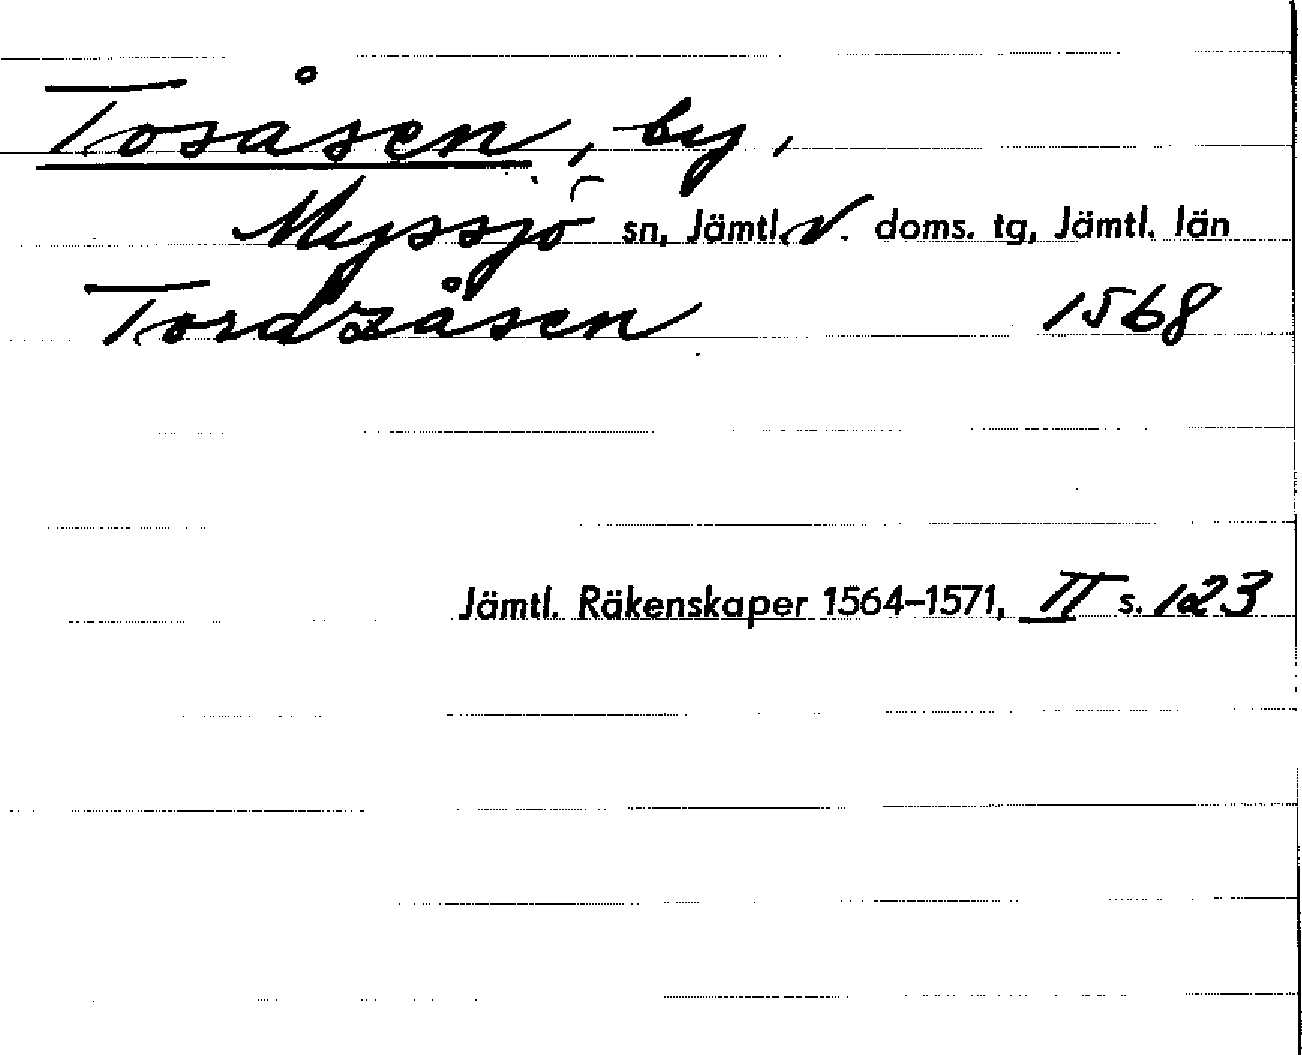 Tosåsen, by,
Myssjö sn, Jämtl. V. doms. tg, Jämtl. län
Tordzåsen 1568
Jämtl. Räkenskaper 1564–1571, II s. 123